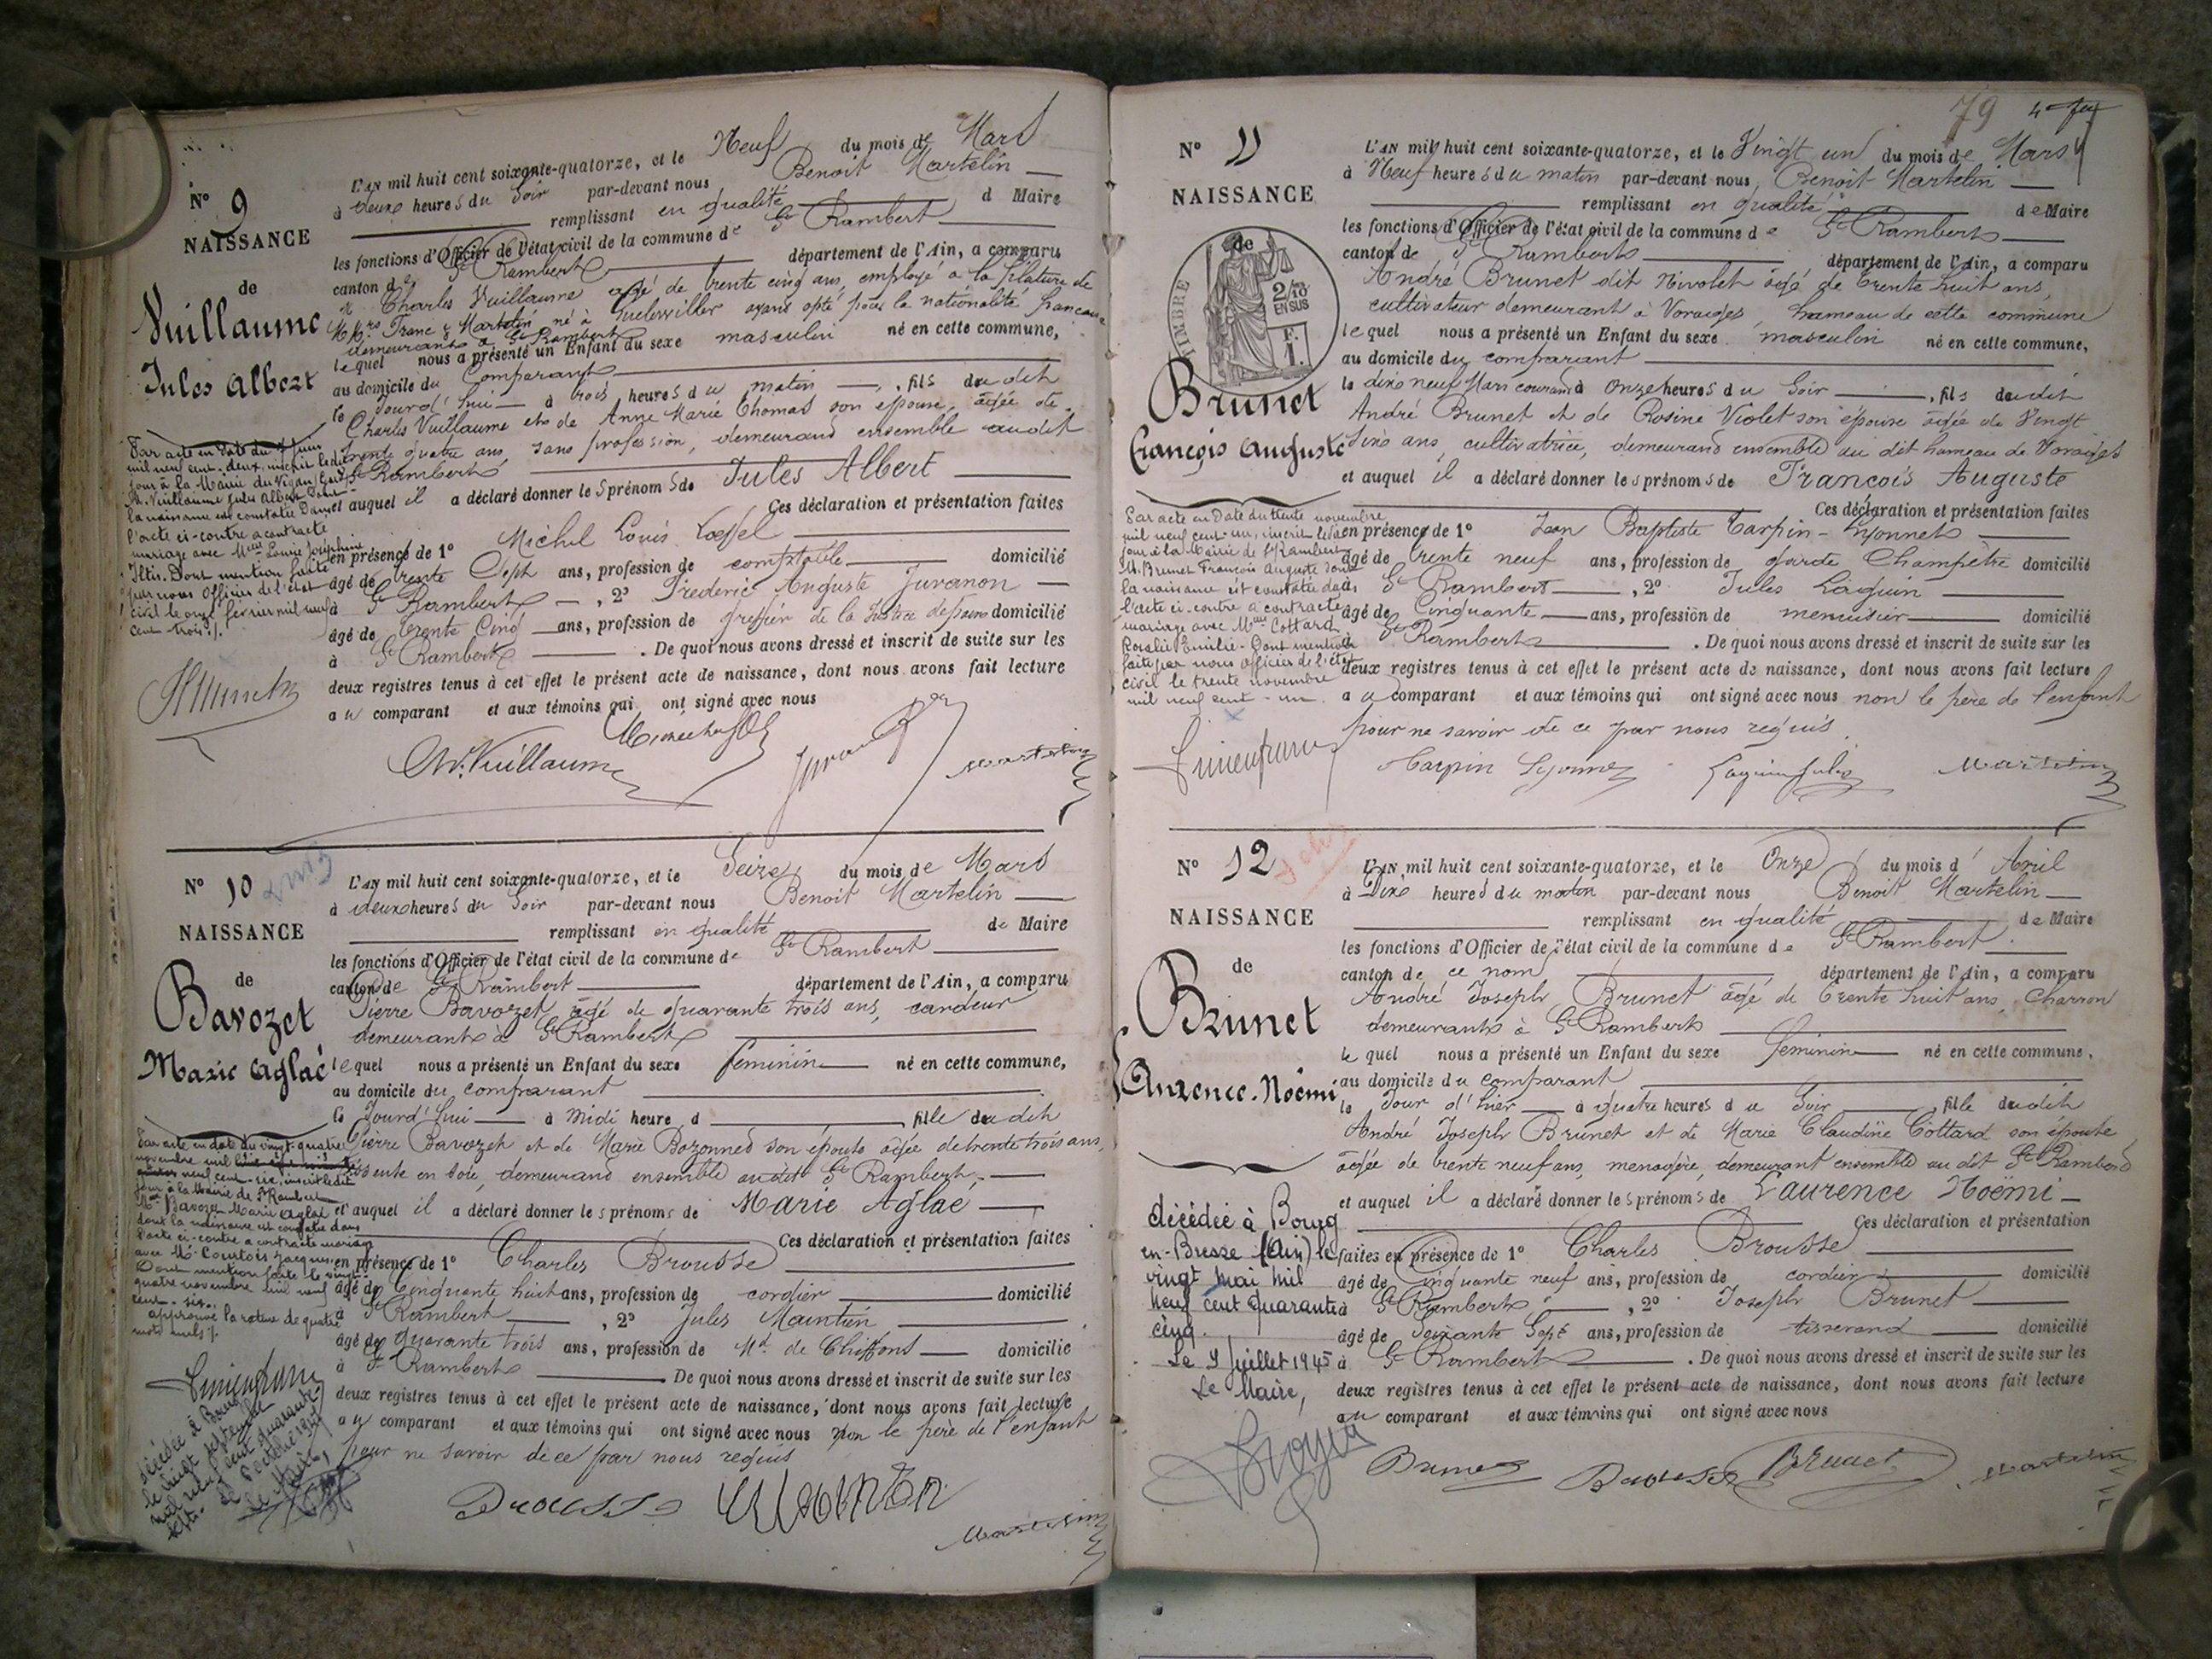 Nº 9
NAISSANCE
de
Vuillaume
Jules Albert
L'AN mil huit cent soixante-quatorze, et le Neuf du mois de Mars
à deux heures du Soir par-devant nous Benoit Martelin
remplissant en qualité d Maire
les fonctions d'Officier de l'état civil de la commune de St Rambert
canton de St Rambert département de l'Ain, a comparu
Charles Vuillaume agé de trente cinq ans, employé a la filature de
Franc & Martelin né à Guebwiller ayant opté pour la nationalité francaise
demeurant à St Rambert
lequel nous a présenté un Enfant du sexe masculin né en cette commune,
au domicile du Comparant
le Jourd'hui à trois heures du matin, fils du dit
Charles Vuillaume et de Anne Marie Thomas son épouse, agée de
trente quatre ans, sans profession, demeurant ensemble audit
St Rambert
et auquel il a déclaré donner les prénoms de Jules Albert
Ces déclaration et présentation faites
en présence de 1º Michel Louis Loeffel
âgé de trente Sept ans, profession de comptable domicilié
à St Rambert, 2º Frederic Auguste Juvanon
âgé de trente Cinq ans, profession de greffier de la Justice de paix domicilié
à St Rambert. De quoi nous avons dressé et inscrit de suite sur les
deux registres tenus à cet effet le présent acte de naissance, dont nous avons fait lecture
au comparant et aux témoins qui ont signé avec nous
Par acte en date du 7 Juin
mil neuf cent-deux, inscrit ledit
jour à la Mairie du Vigan (Gard)
M. Vuillaume Jules Albert dont
la naissance est constatée dans
l'acte ci-contre a contracté
mariage avec Melle Louise Joséphine
Iltis. Dont mention faite
par nous Officier de l'état
civil le onze février mil neuf
cent-trois./.
Ch. Vuillaume
Martelin
Nº 10
NAISSANCE
de
Bavozet
Marie Aglaé
L'AN mil huit cent soixante-quatorze, et le Seize du mois de Mars
à deux heures du Soir par-devant nous Benoit Martelin
remplissant en qualité de Maire
les fonctions d'Officier de l'état civil de la commune de St Rambert
canton de St Rambert département de l'Ain, a comparu
Pierre Bavozet âgé de quarante trois ans, cardeur
demeurant à St Rambert
lequel nous a présenté un Enfant du sexe feminin né en cette commune,
au domicile du comparant
le Jourd'hui à Midi heure d, fille du dit
Pierre Bavozet et de Marie Bozonnet son épouse agée de trente trois ans,
en soie, demeurant ensemble audit St Rambert,
et auquel il a déclaré donner les prénoms de Marie Aglaé
Ces déclaration et présentation faites
en présence de 1º Charles Brousse
âgé de Cinquante huit ans, profession de cordier domicilié
à St Rambert, 2º Jules Maintien
âgé de quarante trois ans, profession de Md de Chiffons domicilié
à St Rambert. De quoi nous avons dressé et inscrit de suite sur les
deux registres tenus à cet effet le présent acte de naissance, dont nous avons fait lecture
au comparant et aux témoins qui ont signé avec nous non le père de l'enfant
pour ne savoir de ce par nous requis
Par acte en date du vingt-quatre
novembre mil
neuf cent-six, inscrit ledit
jour à la Mairie de St Rambert
Bavozet Marie Aglaé
dont la naissance est constatée dans
l'acte ci-contre a contracté mariage
avec Mr Courtois Jacques
Dont mention faite le vingt-
quatre novembre mil neuf
cent-six.
approuvé la rature de quatre
mots nuls ./.
décédée à Bourg
le vingt septembre
mil neuf cent quarante-
sept.
Le Maire,
Brousse
Maintien
Martelin
79
Nº 11
NAISSANCE
de
TIMBRE
2/10
EN SUS
F.
1.
Brunet
François Auguste
L'AN mil huit cent soixante-quatorze, et le Vingt un du mois de Mars
à Neuf heures du matin par-devant nous, Benoit Martelin
remplissant en qualité de Maire
les fonctions d'Officier de l'état civil de la commune de St Rambert
canton de St Rambert département de l'Ain, a comparu
André Brunet dit Nivolet âgé de trente huit ans,
cultivateur demeurant à Voraiges, hameau de cette commune
lequel nous a présenté un Enfant du sexe masculin né en cette commune,
au domicile du comparant
le dix neuf Mars courant à Onze heures du Soir, fils du dit
André Brunet et de Rosine Violet son épouse agée de Vingt
dix ans, cultivatrice, demeurant ensemble au dit hameau de Voraiges
et auquel il a déclaré donner les prénoms de François Auguste
Ces déclaration et présentation faites
en présence de 1º Jean Baptiste Carpin-Lyonnet
âgé de trente neuf ans, profession de garde Champêtre domicilié
à St Rambert, 2º Jules Laguin
âgé de Cinquante ans, profession de menuisier domicilié
à St Rambert. De quoi nous avons dressé et inscrit de suite sur les
deux registres tenus à cet effet le présent acte de naissance, dont nous avons fait lecture
au comparant et aux témoins qui ont signé avec nous non le père de l'enfant
pour ne savoir de ce par nous requis.
Par acte en date du trente novembre
mil neuf cent-un, inscrit ledit
jour à la Mairie de St Rambert
M. Brunet François Auguste dont
la naissance est constatée dans
l'acte ci-contre a contracté
mariage avec Melle Cottard
Rosalie Emilie. Dont mention
faite par nous Officier de l'état
civil le trente novembre
mil neuf cent-un.
Carpin Lyonnet
Laguin Jules
Martelin
Nº 12
NAISSANCE
de
Brunet
Laurence-Noëmi
L'AN mil huit cent soixante-quatorze, et le Onze du mois d'Avril
à Dix heures du matin par-devant nous Benoit Martelin
remplissant en qualité de Maire
les fonctions d'Officier de l'état civil de la commune de St Rambert.
canton de ce nom département de l'Ain, a comparu
André Joseph Brunet âgé de trente huit ans, Charron
demeurant à St Rambert
lequel nous a présenté un Enfant du sexe feminin né en cette commune,
au domicile du comparant
le Jour d'hier à quatre heures du Soir, fille du dit
André Joseph Brunet et de Marie Claudine Cottard son épouse,
âgée de trente neuf ans, menagère, demeurant ensemble au dit St Rambert
et auquel il a déclaré donner les prénoms de Laurence Noëmi
Ces déclaration et présentation
faites en présence de 1º Charles Brousse
âgé de Cinquante neuf ans, profession de cordier domicilié
à St Rambert, 2º Joseph Brunet
âgé de Soixante Sept ans, profession de tisserand domicilié
à St Rambert. De quoi nous avons dressé et inscrit de suite sur les
deux registres tenus à cet effet le présent acte de naissance, dont nous avons fait lecture
au comparant et aux témoins qui ont signé avec nous
décédée à Bourg
en-Bresse (Ain) le
vingt mai mil
neuf cent quarante
cinq.
Le 9 Juillet 1945
Le Maire,
Brunet
Brousse
Brunet
Martelin